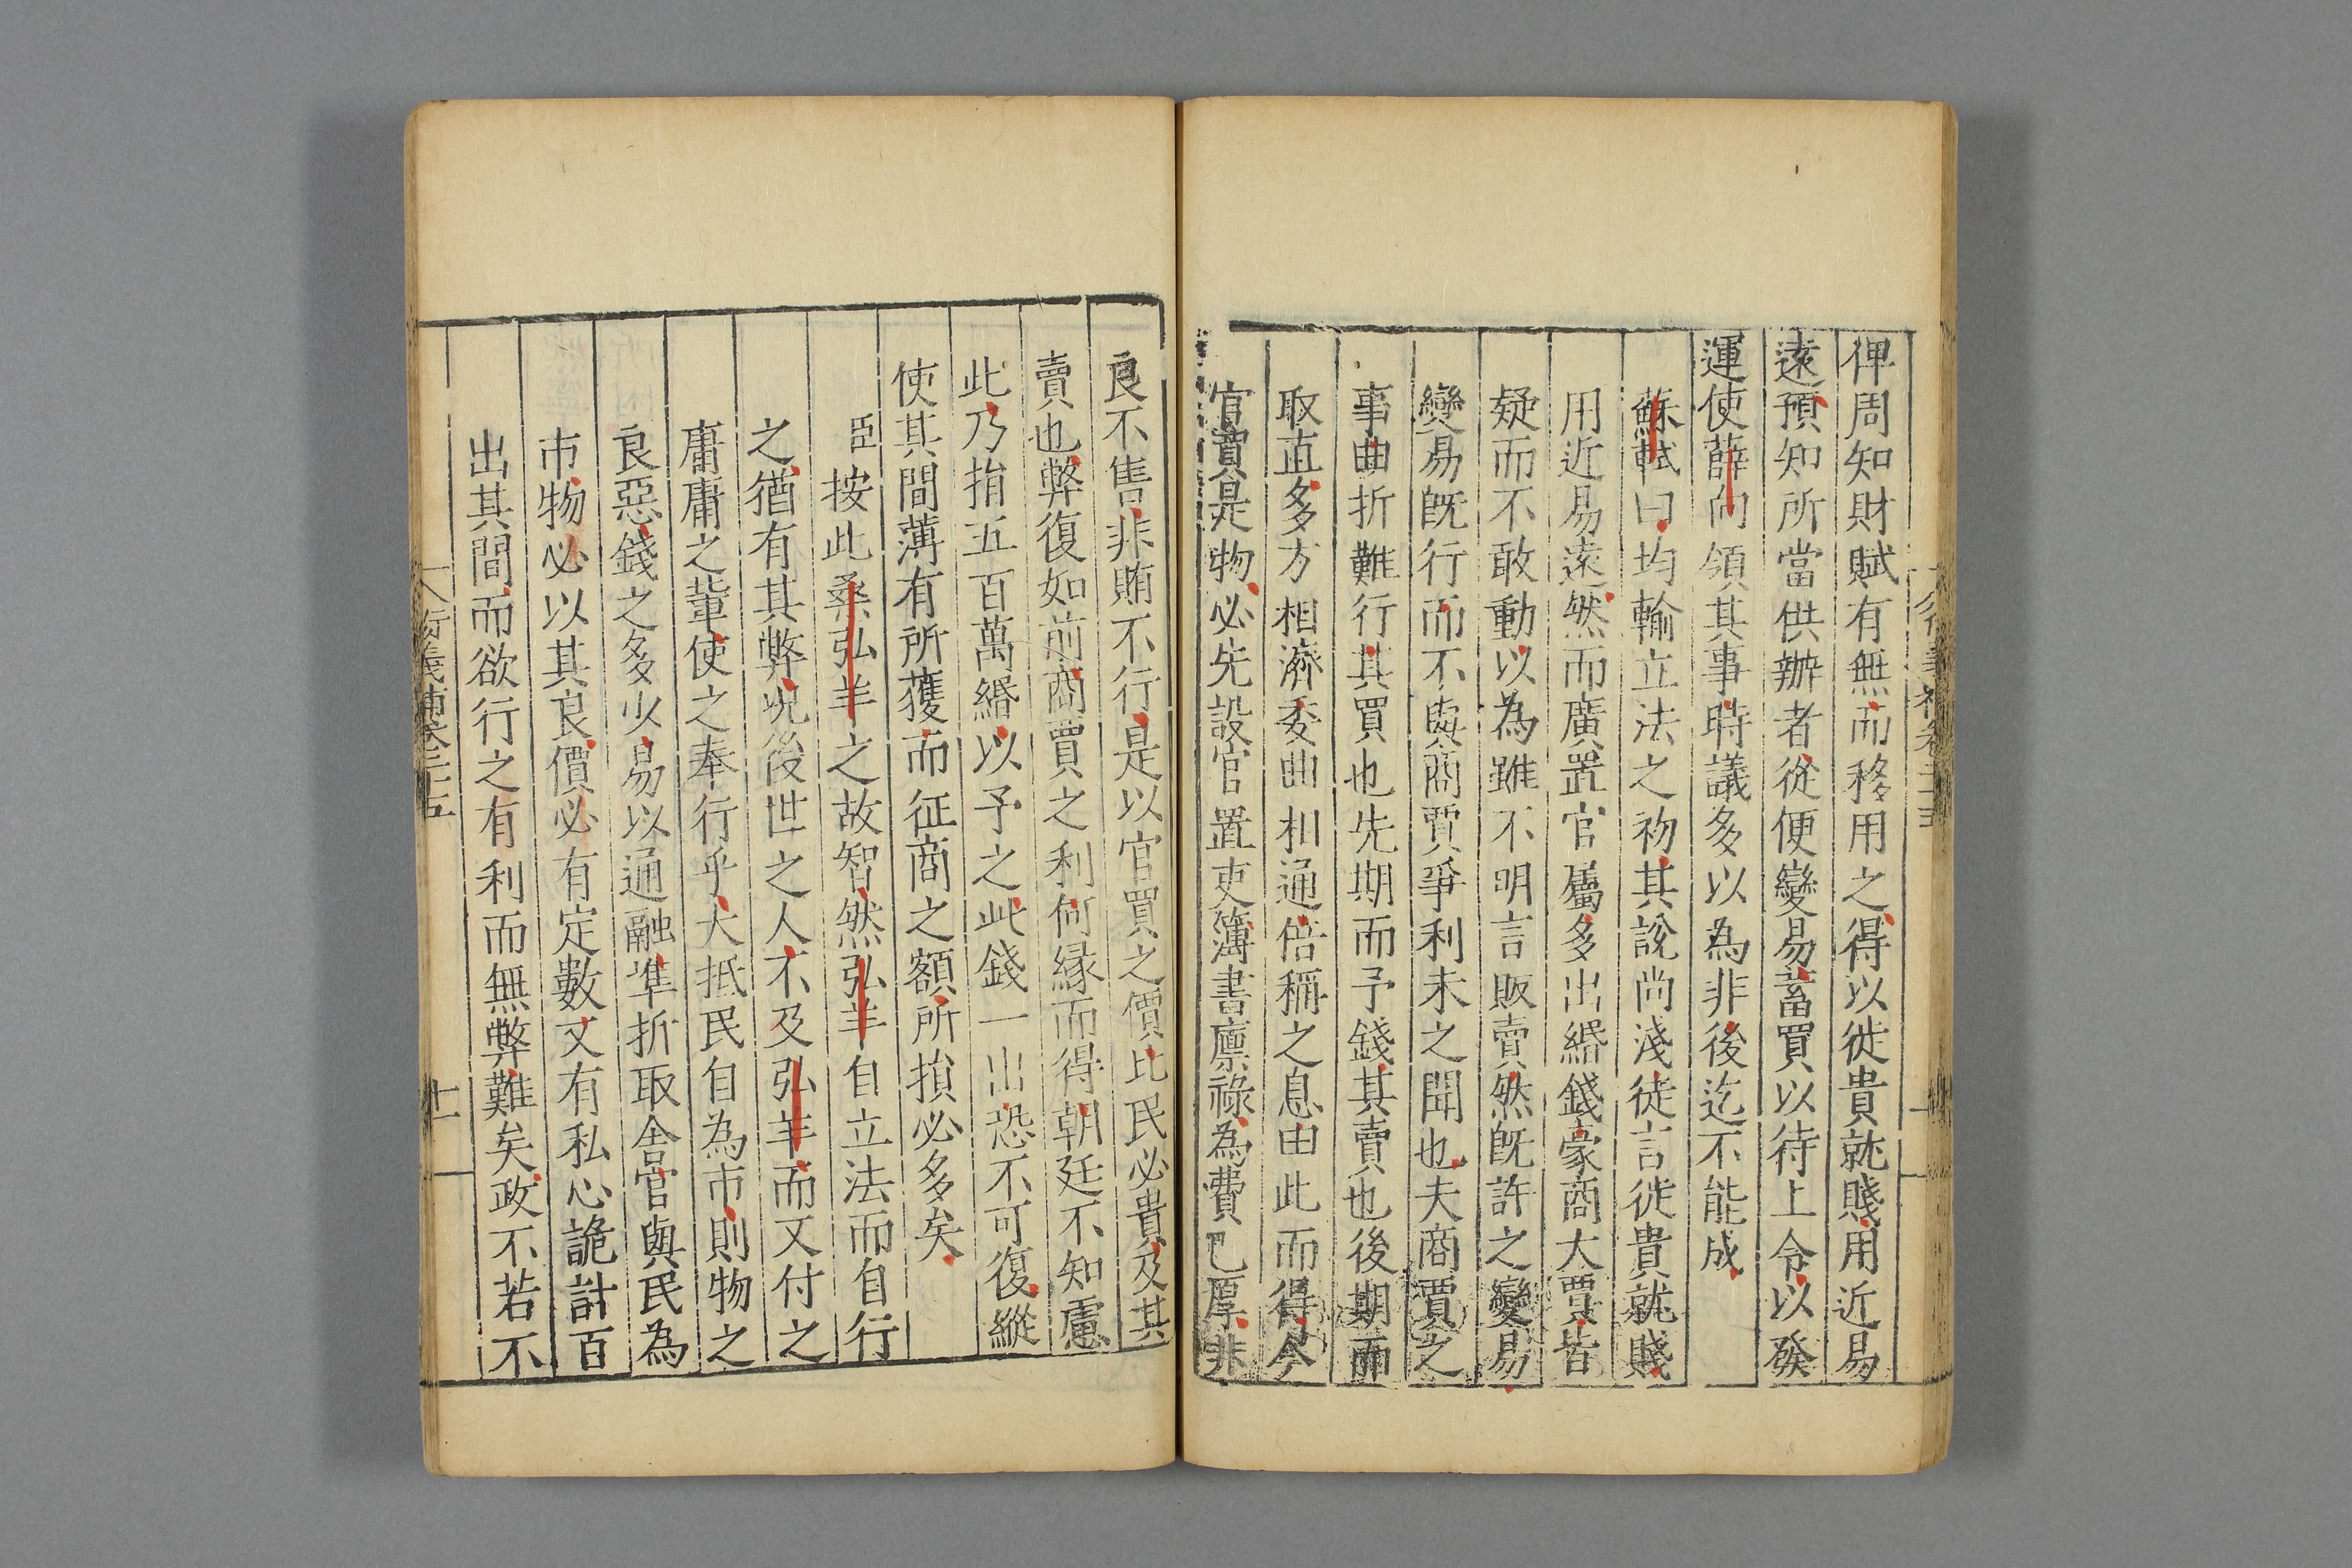 俾周知財賦有無而移用之得以徙貴就賤用近易
遠預知所當供辦者從便變易蓄買以待上令以發
運使薛向領其事時議多以為非後迄不能成
蘇軾曰均輸立法之初其說尚淺徒言徙貴就賤
用近易遠然而廣置官屬多出緡錢豪商大賈皆
疑而不敢動以為雖不明言販賣然既許之變易
變易既行而不與商賈爭利未之聞也夫商賈之
事曲折難行其買也先期而予錢其賣也後期而
取直多方相濟委曲相通倍稱之息由此而得今
官買是物必先設官置吏簿書廪祿為費已厚非
良不售非賄不行是以官買之價比民必貴及其
賣也弊復如前商賈之利何緣而得朝廷不知慮
此乃捐五百萬緡以予之此錢一出恐不可復縱
使其間薄有所獲而征商之額所損必多矣
臣按此桑弘羊之故智然弘羊自立法而自行
之猶有其弊况後世之人不及弘羊而又付之
庸庸之輩使之奉行乎大抵民自為市則物之
良惡錢之多少易以通融凖折取舍官與民為
市物必以其良價必有定數又有私心詭計百
出其間而欲行之有利而無弊難矣政不若不
衍義補卷二十五
十一